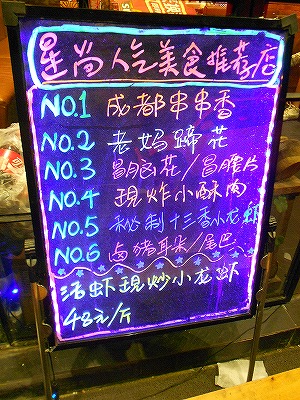 星尚人气美食推荐店
NO.1 成都串串香
NO.2 老妈蹄花
NO.3 冒脑花/冒腰片
NO.4 現炸小酥肉
NO.5 秘制十三香小龙虾
NO.6 卤猪耳朵/尾巴
活虾現炒小龙虾
48元/斤